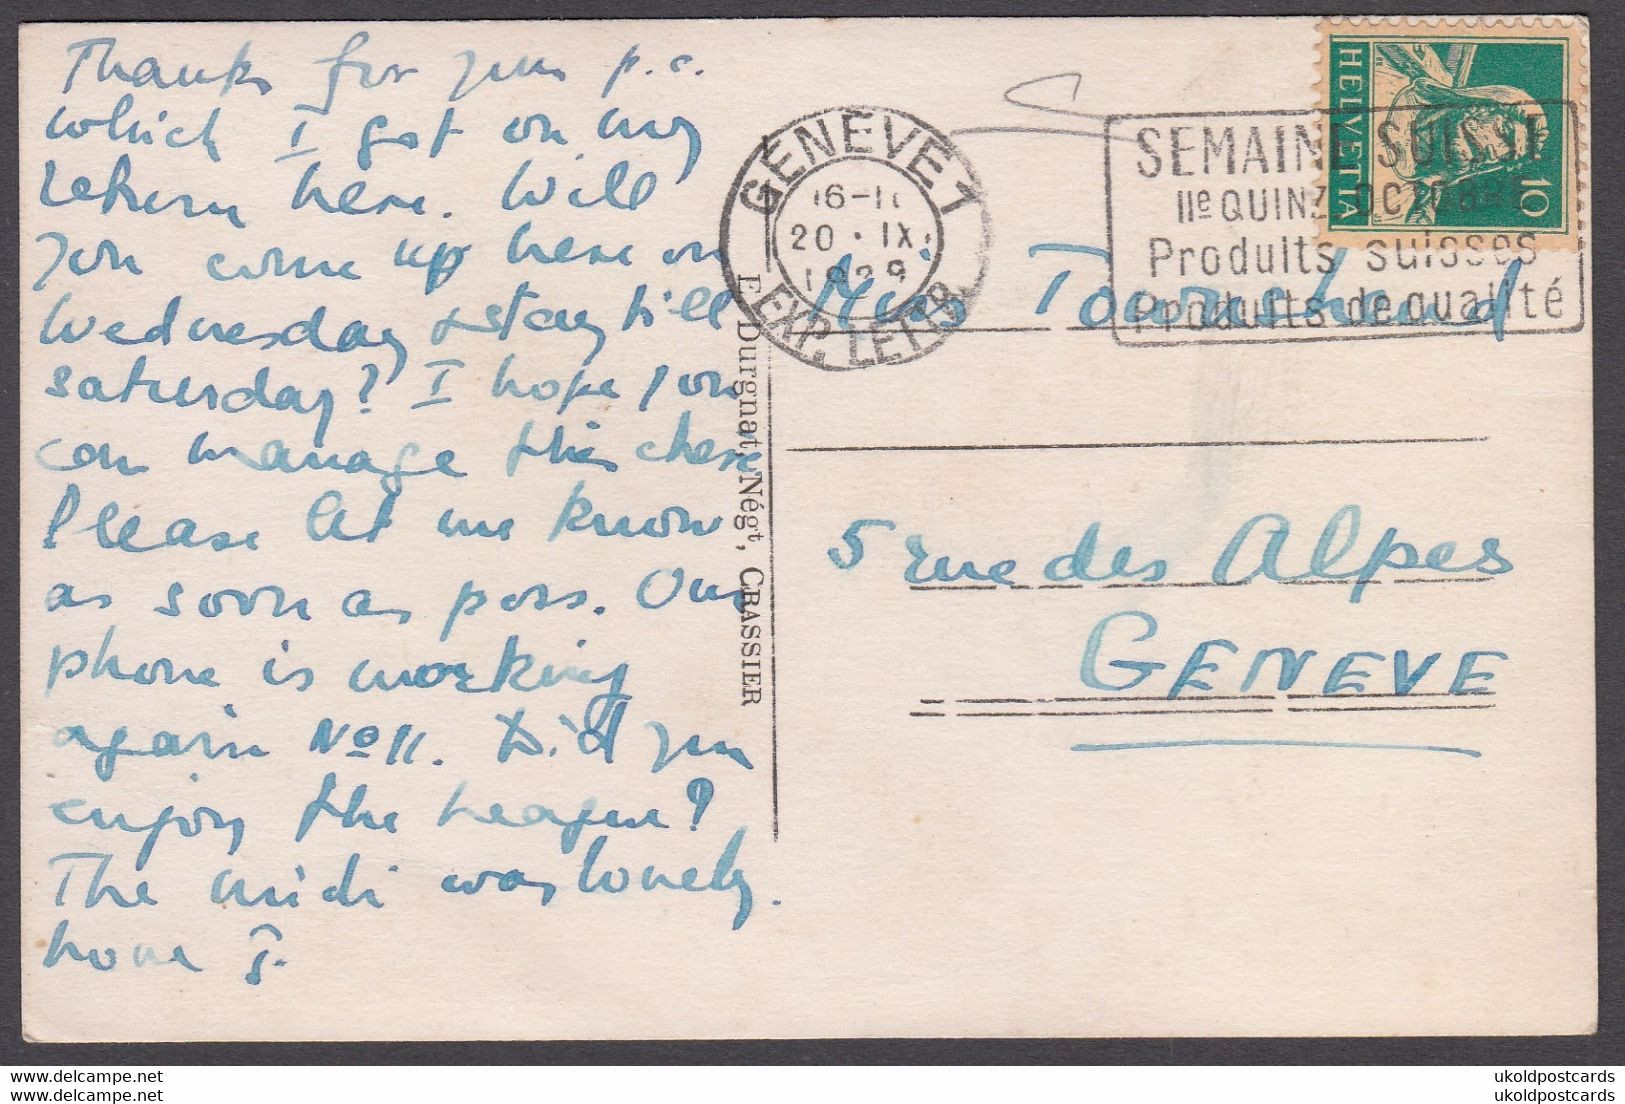 Thanks for your p.c.
which I got on my
return here. Will
you come up here on
Wednesday & stay till
saturday? I hope you
can manage this chère.
Please let me know
as soon as poss. Our
phone is working
again No 11. Did you
enjoy the League?
The midi was lovely.
Love J.
E. Durgnat, Négt, CRASSIER
GENÈVE 1
20 · IX
1929
EXP. LETTR.
SEMAINE SUISSE
IIe QUINZ. OCTOBRE
Produits suisses
Produits de qualité
HELVETIA
10
Miss
5 rue des Alpes
GENEVE
ukoldpostcards
ukoldpostcards
ukoldpostcards
ukoldpostcards